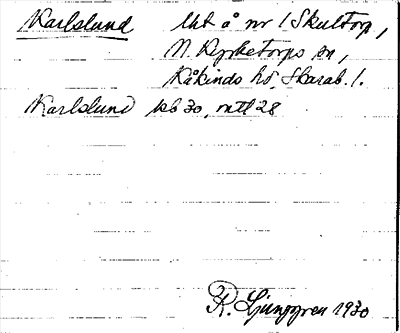 Karlslund Ubt å nr 1 Skultorp,
N. Kyrketorps sn,
Kåkinds hd, Skarab. l.
Karlslund kb 30, mtl 28
R. Ljunggren 1930